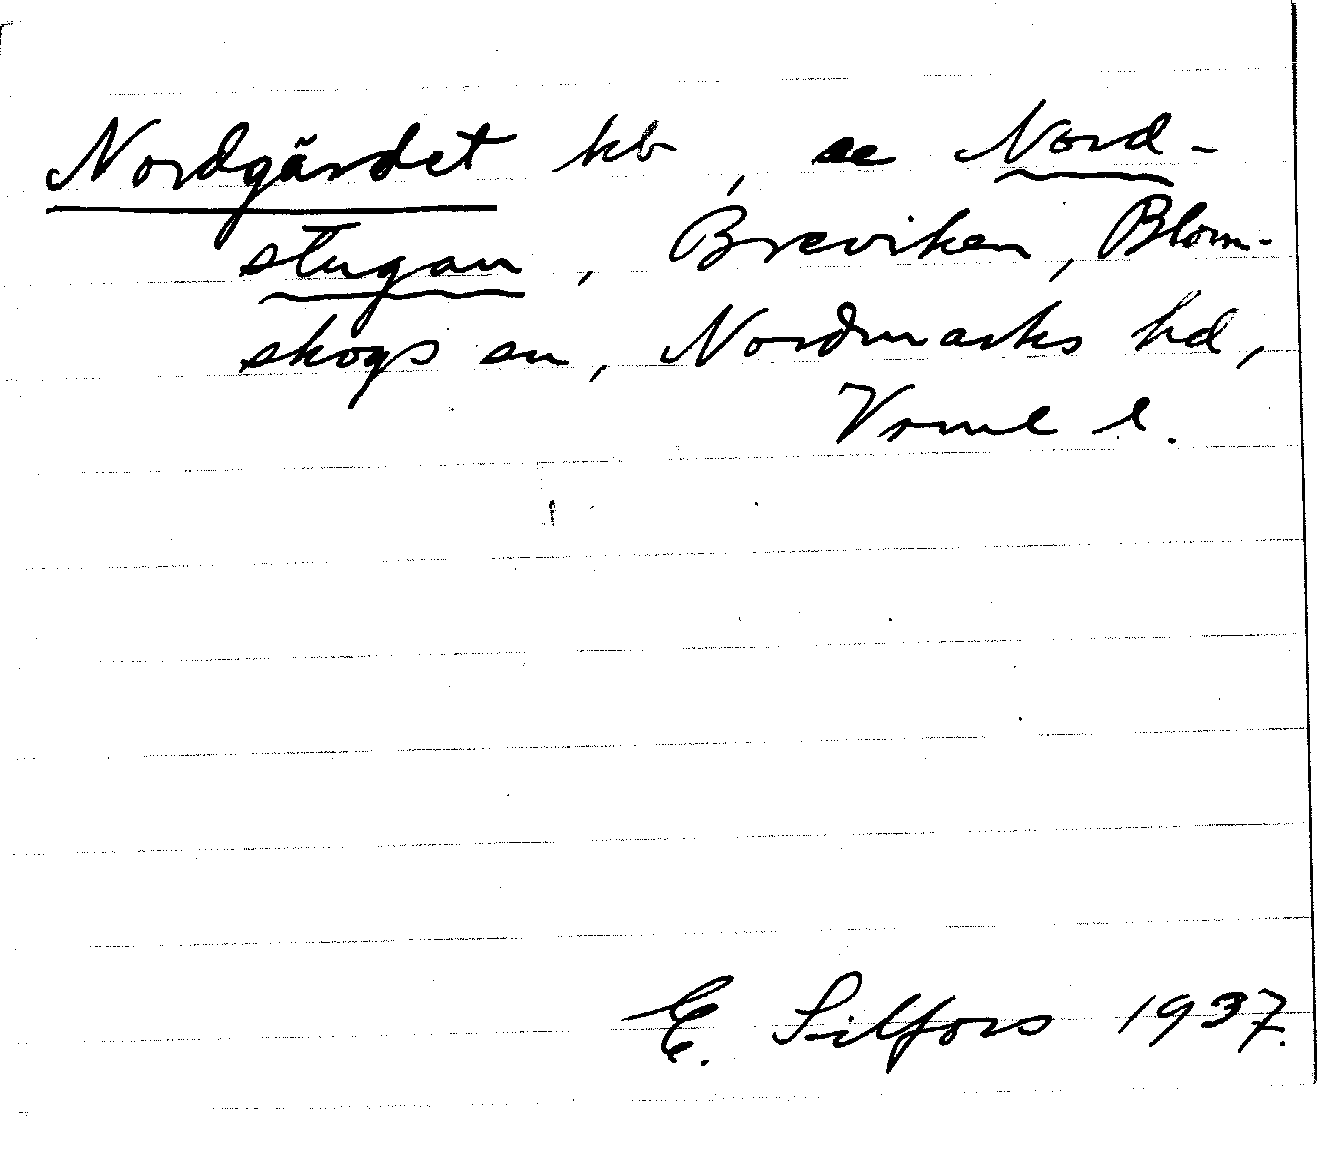 Nordgärdet hb, se Nord-
stugan, Breviken, Blom-
skogs sn, Nordmarks hd,
Vrml l.
E. Silfors 1937.